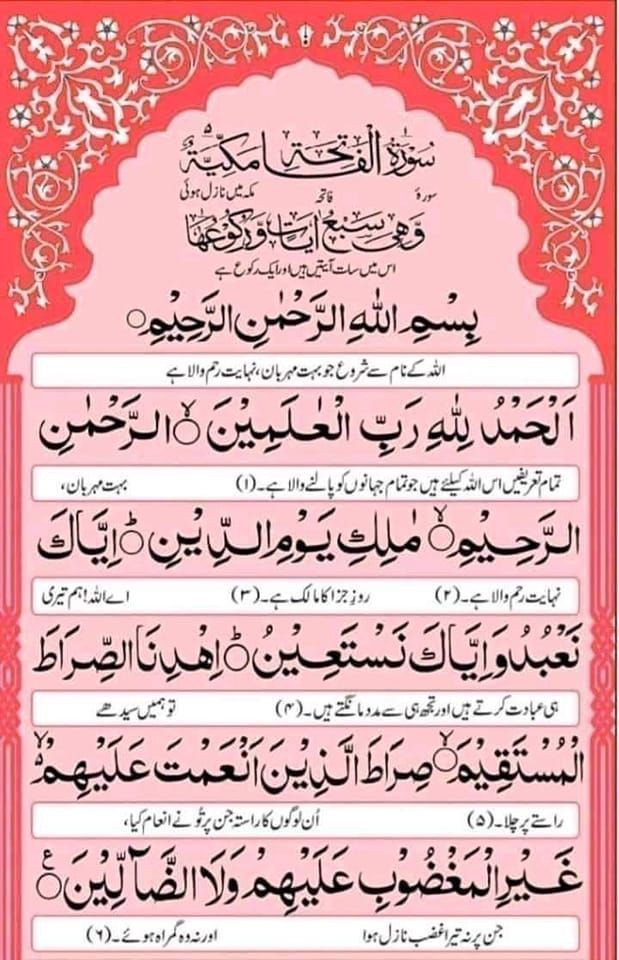 سُوْرَةُ الْفَاتِحَةِ مَكِّيَّةٌ
سورۂ فاتحہ مکہ میں نازل ہوئی
وَّهِیَ سَبْعُ اٰیَاتٍ وَّرُكُوْعُهَا
اس میں سات آیتیں ہیں اور ایک رکوع ہے
بِسْمِ اللّٰهِ الرَّحْمٰنِ الرَّحِیْمِ
اللہ کے نام سے شروع جو بہت مہربان، نہایت رحم والا ہے
اَلْحَمْدُ لِلّٰهِ رَبِّ الْعٰلَمِیْنَ ۙ الرَّحْمٰنِ
تمام تعریفیں اس اللہ کیلئے ہیں جو تمام جہانوں کو پالنے والا ہے۔(۱) بہت مہربان،
الرَّحِیْمِ ۙ مٰلِكِ یَوْمِ الدِّیْنِ ؕ اِیَّاكَ
نہایت رحم والا ہے۔(۲) روزِ جزا کا مالک ہے۔(۳) اے اللہ! ہم تیری
نَعْبُدُ وَ اِیَّاكَ نَسْتَعِیْنُ ؕ اِهْدِنَا الصِّرَاطَ
ہی عبادت کرتے ہیں اور تجھ ہی سے مدد مانگتے ہیں۔(۴) تو ہمیں سیدھے
الْمُسْتَقِیْمَ ۙ صِرَاطَ الَّذِیْنَ اَنْعَمْتَ عَلَیْهِمْ ۙ۬
راستے پر چلا۔(۵) اُن لوگوں کا راستہ جن پر تُو نے انعام کیا،
غَیْرِ الْمَغْضُوْبِ عَلَیْهِمْ وَلَا الضَّآلِّیْنَ ع
جن پر نہ تیرا غضب نازل ہوا اور نہ وہ گمراہ ہوئے۔(۶)